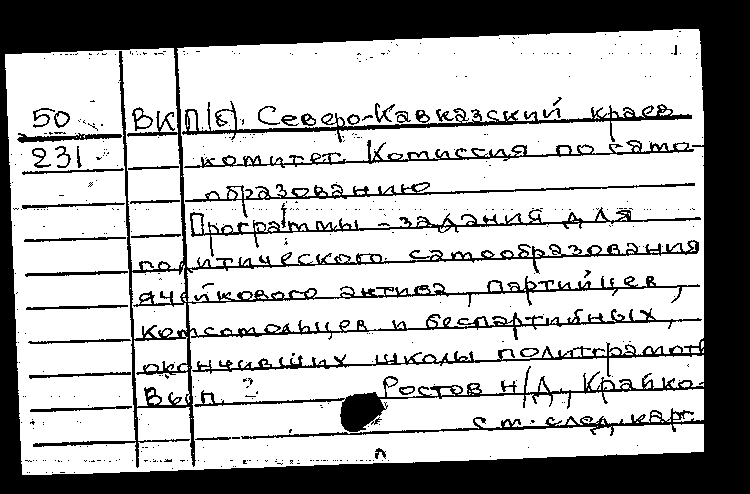 50 ВКП(б). Северо-Кавказский краев
231 комитет. Комиссия по само-
образованию
Программы-задания для
политического самообразования
ячейкового актива, партийцев,
комсомольцев и беспартийных,
окончивших школы политграмоты
Вып. 2 Ростов н/Д., Крайко-
см. след. карт.